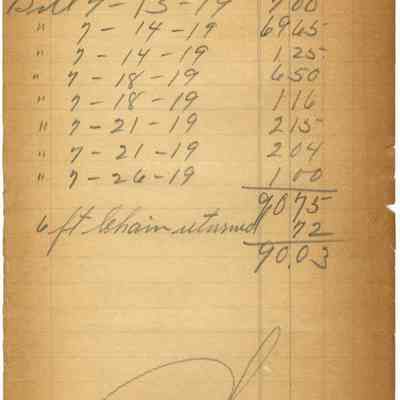 Bill 7-13-19 7 00
" 7-14-19 69 65
" 7-14-19 1 25
" 7-18-19 6 50
" 7-18-19 1 16
" 7-21-19 2 15
" 7-21-19 2 04
" 7-26-19 1 00
90 75
6 ft Chain returned 72
90.03